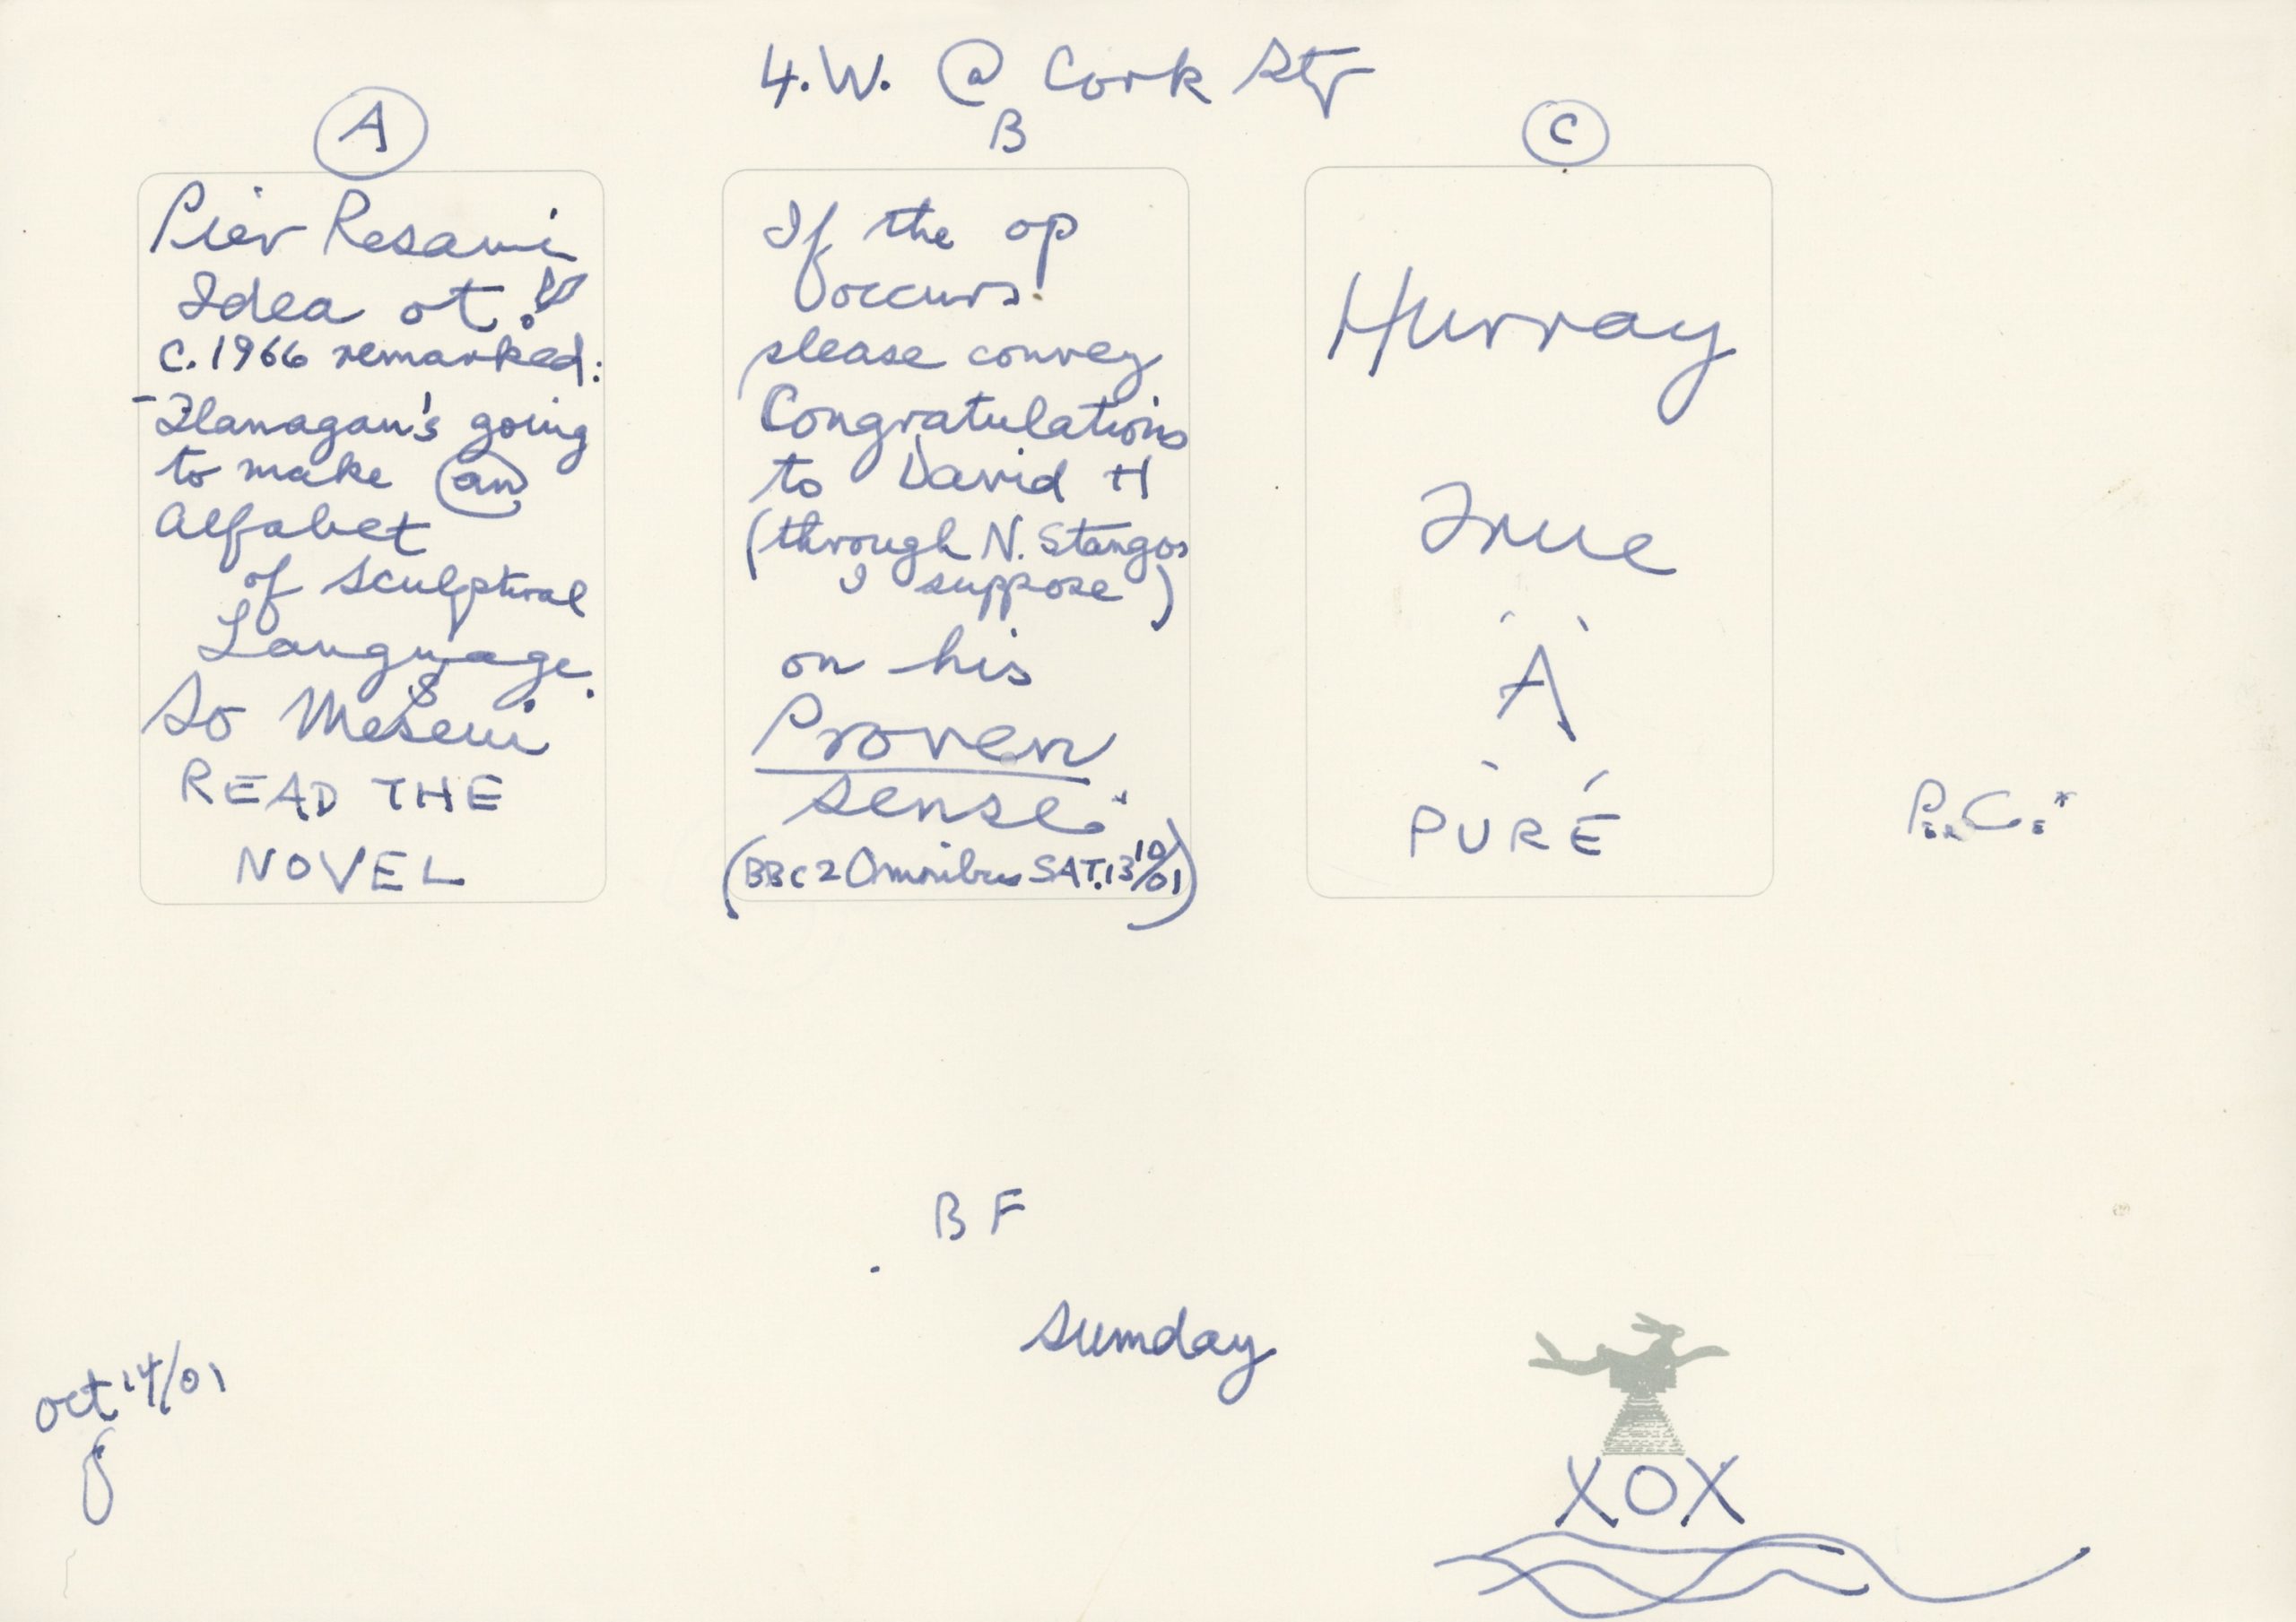 4.W. @ Cork Str
A
Pier Resani
Idea ot!
c.1966 remarked:
-Flanagan's going
to make an
alfabet
of sculptural
Language.
So Meseni
READ THE
NOVEL
B
If the op
occurs.
please convey
Congratulations
to David H
(through N. Stangos
I suppose)
on his
Proven
sense.
(BBC2 Omnibus SAT.13 10/01)
C
Hurray
True
A
PURÉ
P.C.*
BF
Sunday
oct 14/01
XOX